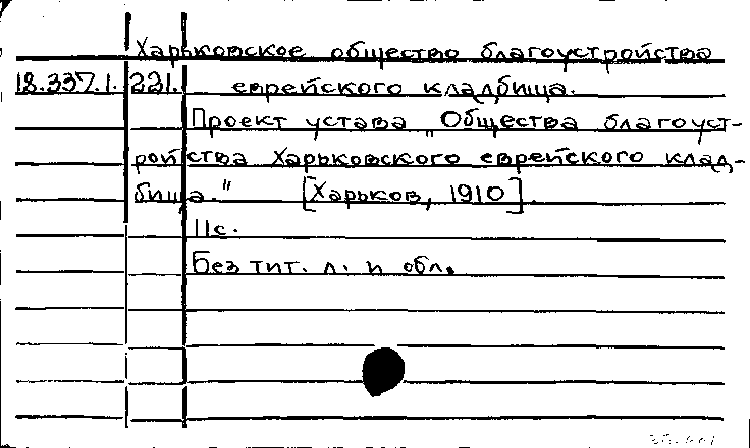 Харьковское общество благоустройства
18.337.1. 221. еврейского кладбища.
Проект устава „Общества благоуст-
ройства Харьковского еврейского клад-
бища." [Харьков, 1910].
11с.
Без тит. л. и обл.